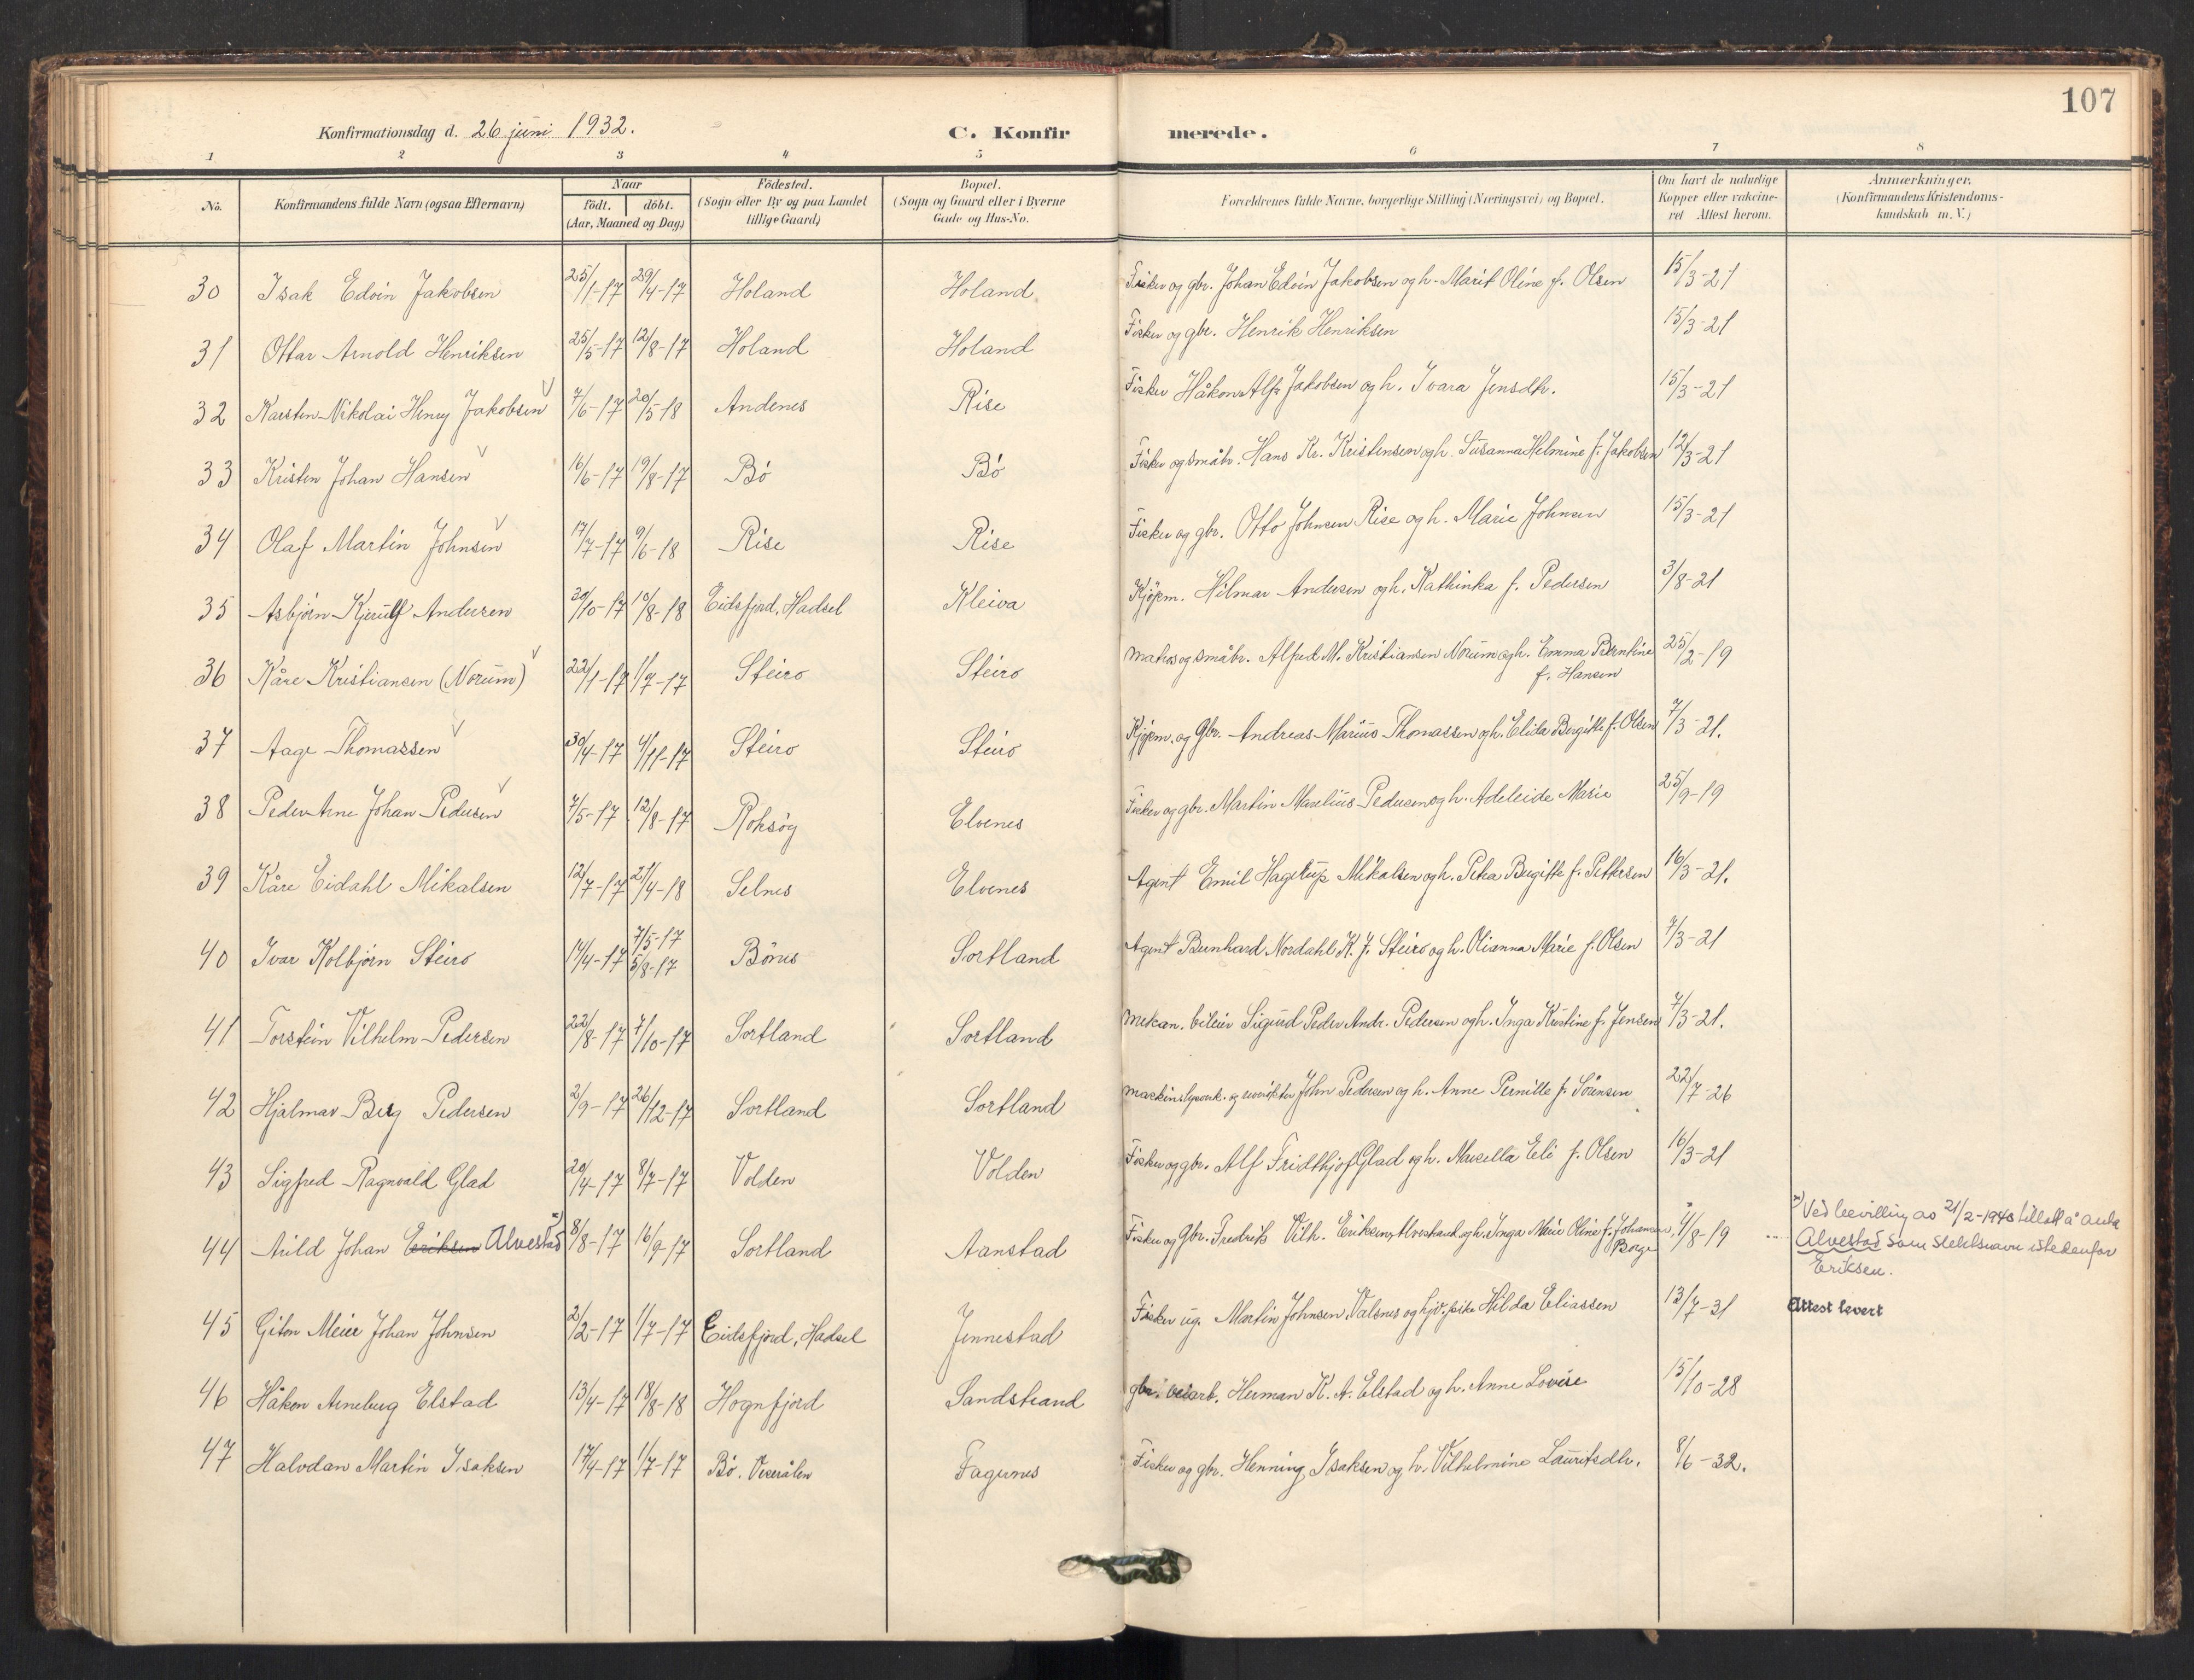 107
Konfirmationsdag d. 26 juni 1932.
C. Konfirmerede.
1 2 3 4 5 6 7 8
No.
Konfirmandens fulde Navn (ogsaa Efternavn)
Naar
födt. döbt.
(Aar, Maaned og Dag)
Födested.
(Sogn eller By og paa Landet
tillige Gaard)
Bopæl.
(Sogn og Gaard eller i Byerne
Gade og Hus-No.
Forældrenes fulde Navne, borgerlige Stilling (Næringsvei) og Bopæl.
Om havt de naturlige
Kopper eller vakcine-
ret Attest herom.
Anmærkninger.
(Konfirmandens Kristendoms-
kundskab m. V.)
30 Isak Edvin Jakobsen 25/1-17 29/4-17 Holand Holand Fisker og gbr. Johan Edvin Jakobsen og h. Marit Oline f. Olsen 15/3-21
31 Ottar Arnold Henriksen 25/5-17 12/8-17 Holand Holand Fisker og gbr. Henrik Henriksen 15/3-21
32 Karsten Nikolai Henry Jakobsen 7/6-17 20/5-18 Andenes Rise Fisker Håkon Alfr Jakobsen og h. Ivara Jensdtr. 15/3-21
33 Kristen Johan Hansen 16/6-17 19/8-17 Bö Bö Fisker og småbr. Hans Kr. Kristensen og h. Susanna Helmine f. Jakobsen 12/3-21
34 Olaf Martin Johnsen 17/7-17 9/6-18 Rise Rise Fisker og gbr. Otto Johnsen Rise og h. Marie Johnsen 15/3-21
35 Asbjörn Kjerulf Andersen 20/10-17 10/8-18 Eidsfjord, Hadsel Kleiva Kjöpm. Hilmar Andersen og h. Kathinka f. Pedersen 3/8-21
36 Kåre Kristiansen (Norum) 22/1-17 1/7-17 Steiro Steiro Matros og småbr. Alfred M. Kristiansen Norum og h. Emma Berntine 25/2-19
f. Hansen
37 Aage Thomassen 30/4-17 4/11-17 Steiro Steiro Kjöpm. og Gbr. Andreas Marius Thomassen og h. Elida Bergitte f. Olsen 7/3-21.
38 Peder Arne Johan Pedersen 7/5-17 12/8-17 Roksöy Elvenes Fisker og gbr. Martin Marelius Pedersen og h. Adeleide Marie 25/9-19
39 Kåre Eidahl Mikalsen 12/7-17 21/4-18 Selnes Elvenes Agent Emil Hagerup Mikalsen og h. Petra Bergitte f. Pettersen 16/3-21.
40 Ivar Kolbjörn Steiro 14/4-17 7/5-17 5/8-17 Börnes Sortland Agent Bernhard Nordahl K. J. Steiro og h. Olianna Marie f. Olsen 7/3-21
41 Torstein Vilhelm Pedersen 22/8-17 7/10-17 Sortland Sortland Mekan. bileier Sigurd Peder Andr. Pedersen og h. Inga Kristine f. Jensen 7/3-21.
42 Hjalmar Berg Pedersen 2/9-17 26/12-17 Sortland Sortland John Pedersen og h. Anne Pernille f. Sörensen 22/7-26
43 Sigfred Ragnvald Glad 20/4-17 8/7-17 Volden Volden Fisker og gbr. Alf Fridthjof Glad og h. Marcella Eli f. Olsen 16/3-21
44 Arild Johan Eriksen Alvestad x) 8/8-17 16/9-17 Sortland Aanstad Fisker og Gbr. Fredrik Vilh. Eriksen, Alvestad og h. Inga Marie Oline f. Johansen, 4/8-19
Borge
x) Ved bevilling av 21/2-1940 tillatt å anta
Alvestad som slektsnavn istedenfor
Eriksen.
45 Giton Meier Johan Johnsen 2/2-17 1/7-17 Eidsfjord, Hadsel Jennestad Fisker ug. Martin Johnsen, Valsnes og hjv. pike Hilda Eliassen 13/7-31 Attest levert
46 Håkon Arneberg Elstad 13/4-17 18/8-18 Hognfjord Sandstrand gbr. veiarb. Herman K. A. Elstad og h. Anne Lovise 15/10-28
47 Halvdan Martin Isaksen 17/4-17 1/7-17 Bö, Vesterålen Fagernes Fisker og gbr. Henning Isaksen og h. Vilhelmine Lauritsdtr. 8/6-32.